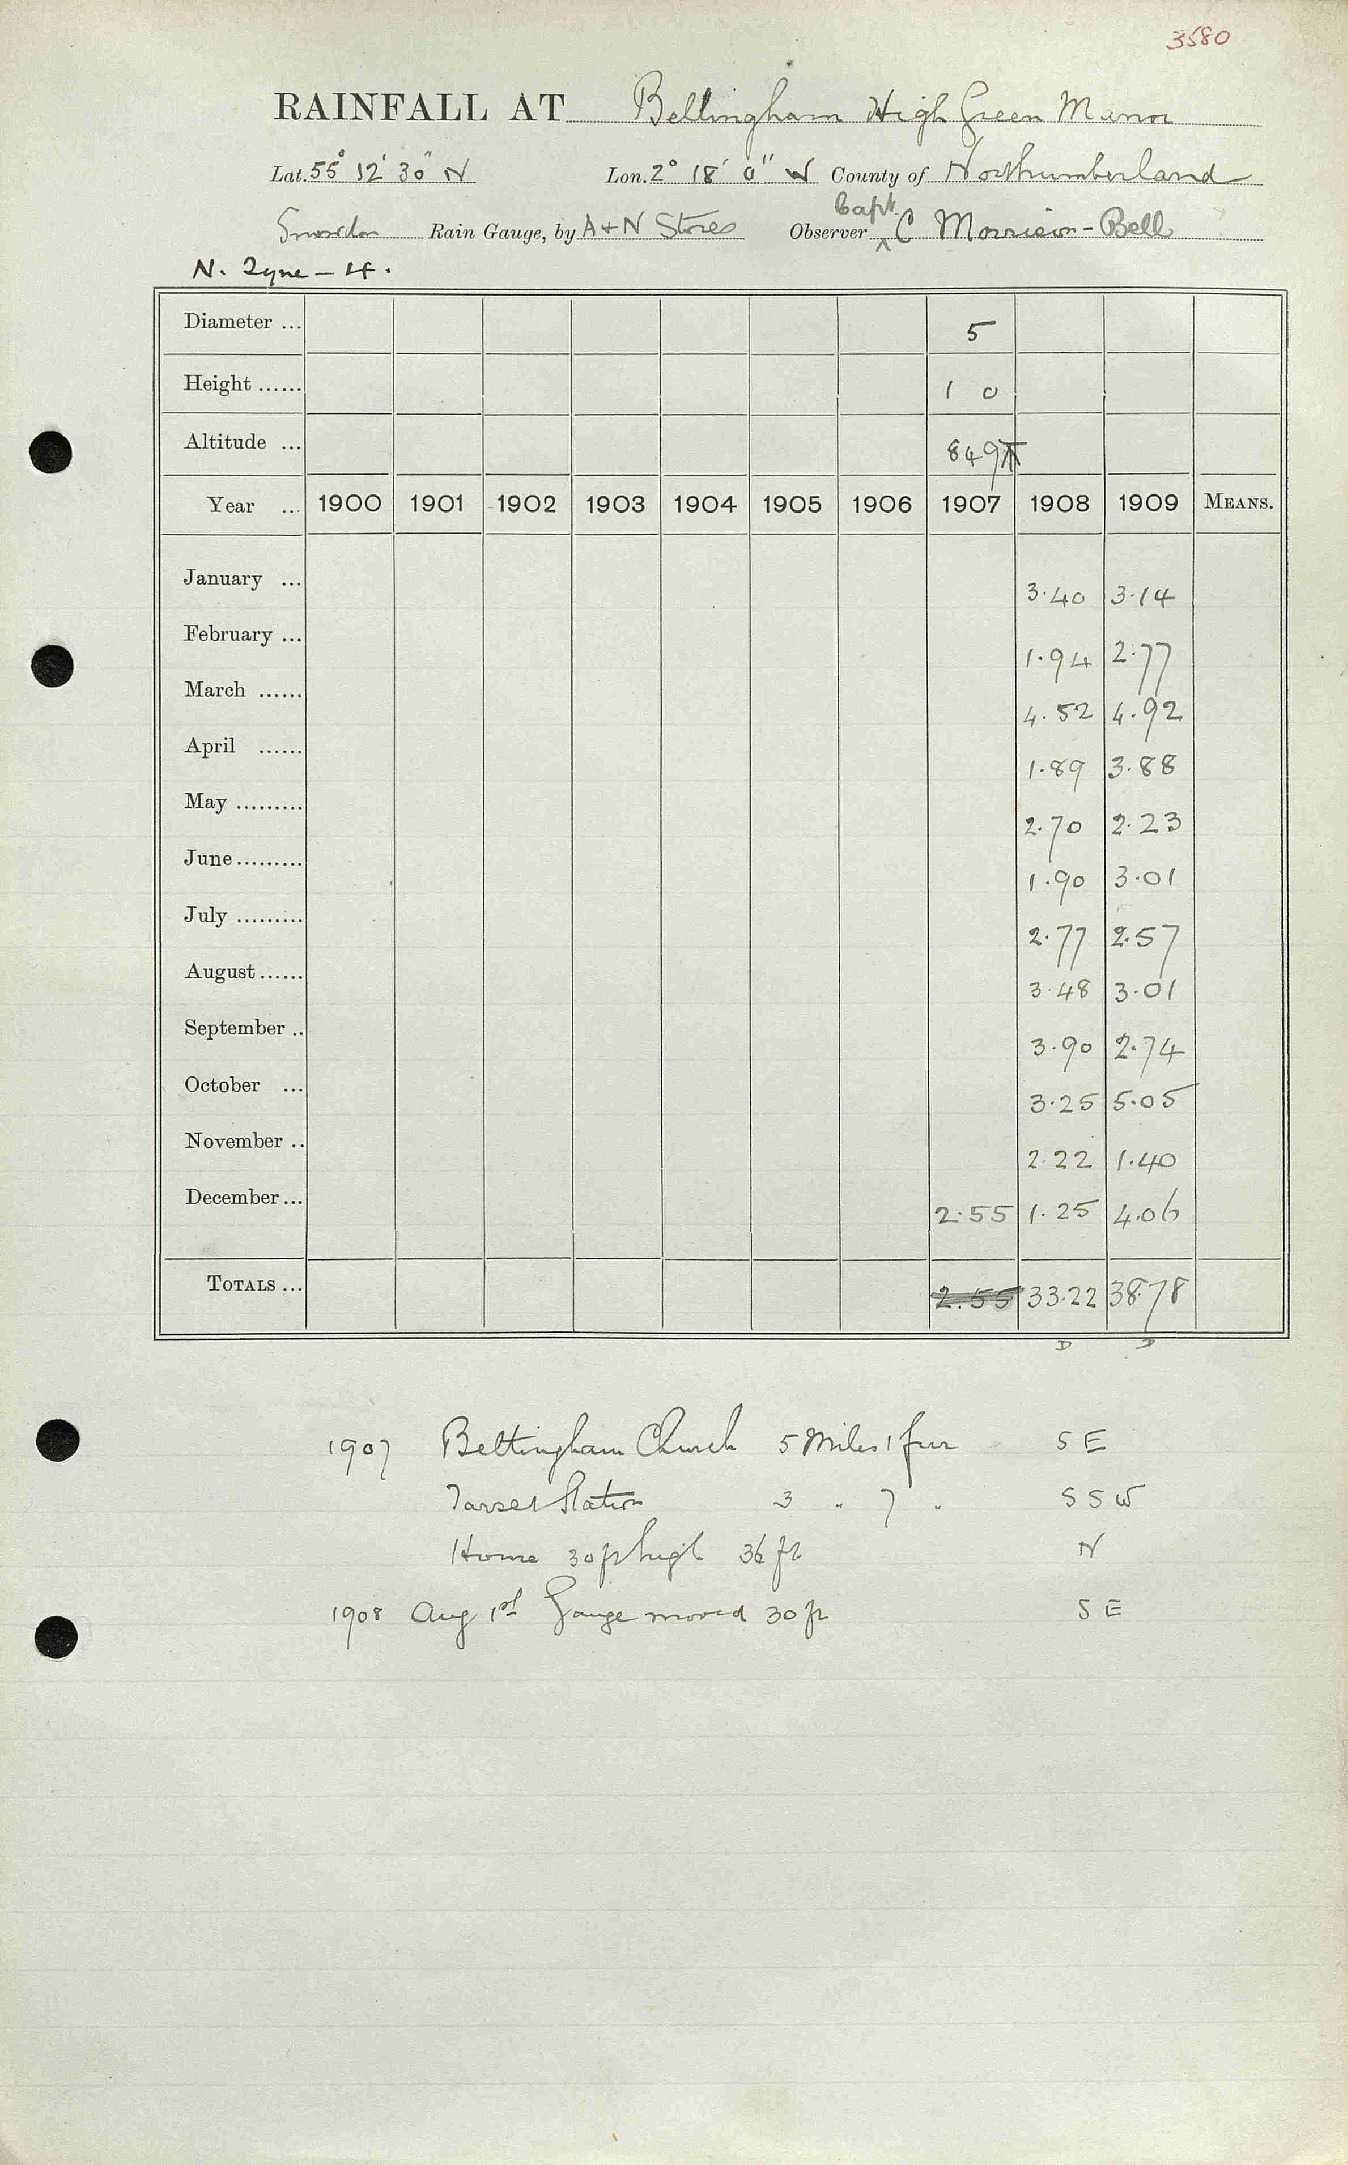 3580
RAINFALL AT Bellingham High Green Manor
Lat. 55° 12' 30" N Lon. 2° 18' 0" W County of Northumberland
Snowdon Rain Gauge, by A + N Stores Observer Capt. C Morrison-Bell
N. Tyne - 4.
Diameter ... 5
Height ...... 1 0
Altitude ... 849
Year ... 1900 1901 1902 1903 1904 1905 1906 1907 1908 1909 MEANS.
January ... 3.40 3.14
February ... 1.94 2.77
March ...... 4.52 4.92
April ...... 1.89 3.88
May ......... 2.70 2.23
June ......... 1.90 3.01
July ......... 2.77 2.57
August ...... 3.48 3.01
September .. 3.90 2.74
October ... 3.25 5.05
November .. 2.22 1.40
December ... 2.55 1.25 4.06
TOTALS ... 2.55 33.22 38.78
D D
1907 Bellingham Church 5 Miles 1 fur S E
Tarset Station 3 " 7 " S S W
Home 30 ft high 36 ft N
1908 Aug 1st Gauge moved 30 ft S E